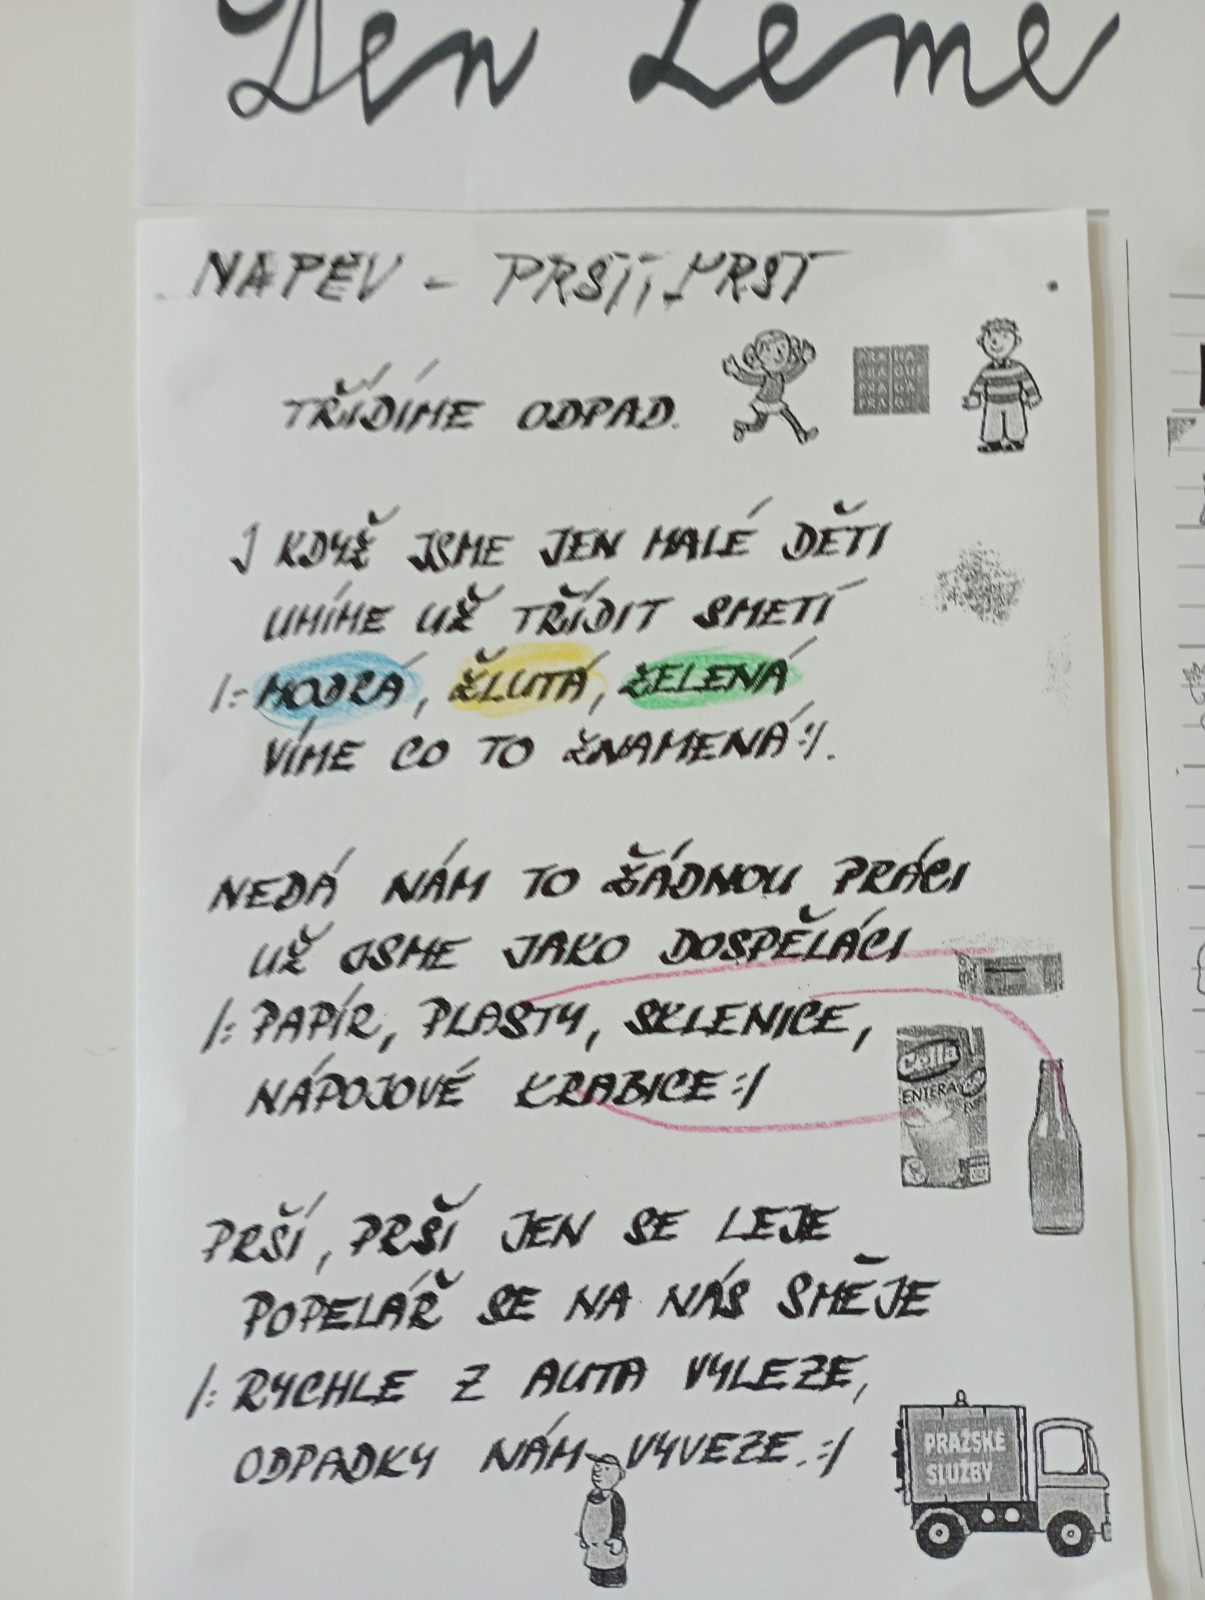 Den Země
NÁPĚV - PRŠÍ, PRŠÍ
TŘÍDÍME ODPAD.
I KDYŽ JSME JEN MALÉ DĚTI
UMÍME UŽ TŘÍDIT SMETÍ
/: MODRÁ, ŽLUTÁ, ZELENÁ
VÍME CO TO ZNAMENÁ :/.
NEDÁ NÁM TO ŽÁDNOU PRÁCI
UŽ JSME JAKO DOSPĚLÁCI
/: PAPÍR, PLASTY, SKLENICE,
NÁPOJOVÉ KRABICE :/
Cella
ENTERA
PRŠÍ, PRŠÍ JEN SE LEJE
POPELÁŘ SE NA NÁS SMĚJE
/: RYCHLE Z AUTA VYLEZE,
ODPADKY NÁM VYVEZE. :/
PRAŽSKÉ
SLUŽBY